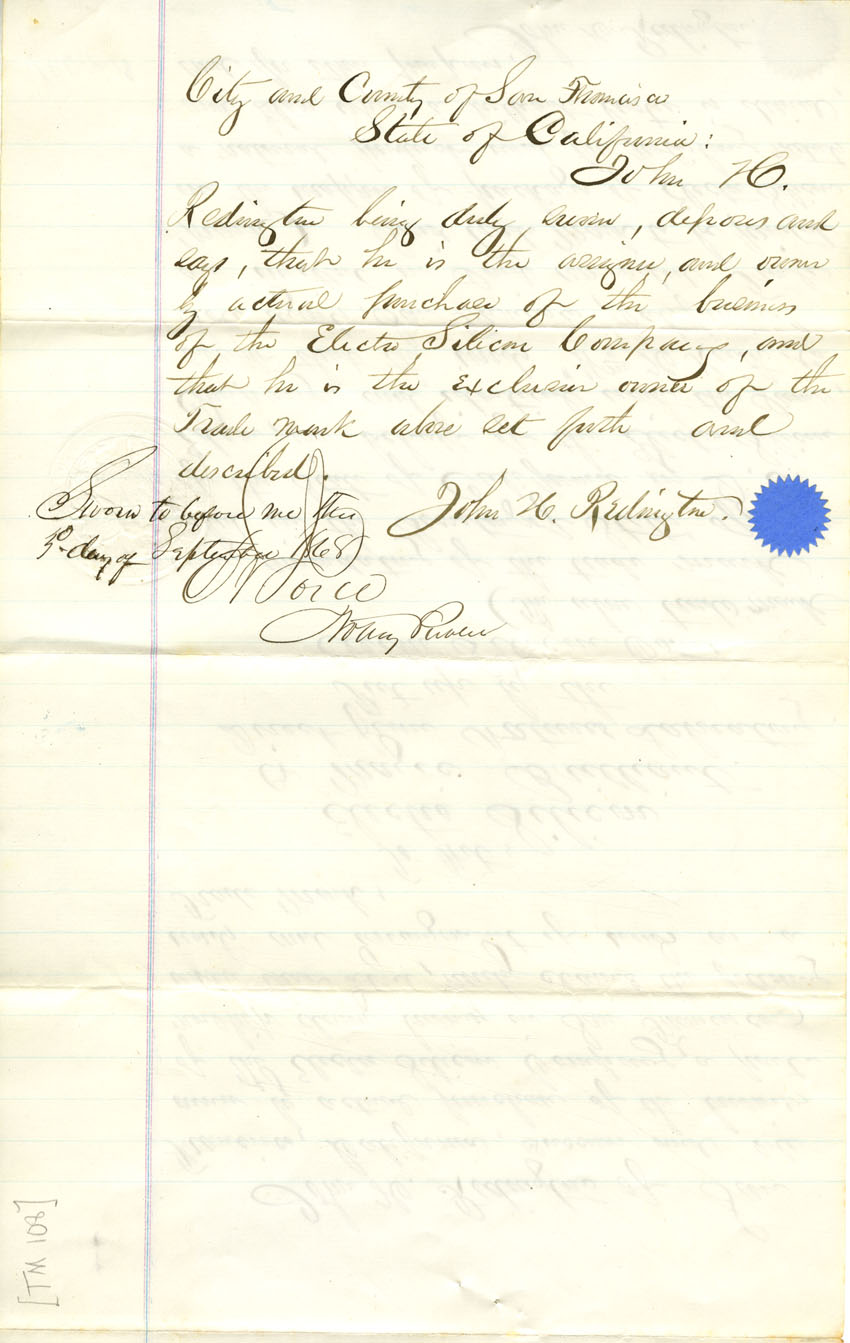 City and County of San Francisco
State of California:
John H.
Redington being duly sworn, deposes and
says, that he is the assignee, and owner
by actual purchase of the business
of the Electro Silicon Company, and
that he is the exclusive owner of the
Trade mark above set forth and
described.
John H. Redington.
Sworn to before me this
day of September 1868
Notary Public
[TM 108]